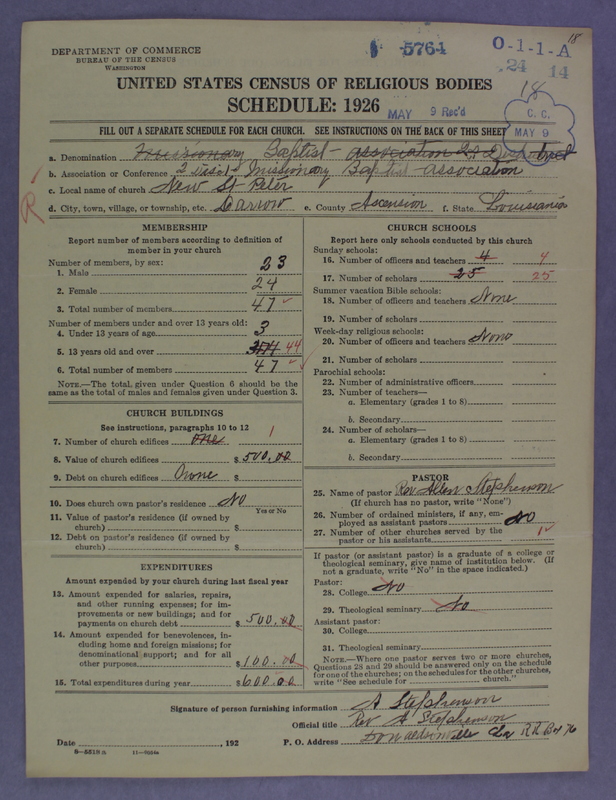 18
DEPARTMENT OF COMMERCE
BUREAU OF THE CENSUS
WASHINGTON
5764
O-1-1-A
24 14
18
UNITED STATES CENSUS OF RELIGIOUS BODIES
SCHEDULE: 1926
MAY 9 Rec'd
C. C.
MAY 9
FILL OUT A SEPARATE SCHEDULE FOR EACH CHURCH. SEE INSTRUCTIONS ON THE BACK OF THIS SHEET
a. Denomination Baptist-
b. Association or Conference Missionary Baptist association
c. Local name of church New St Peter
d. City, town, village, or township, etc. Darrow e. County Ascension f. State Louisiania
R
MEMBERSHIP
Report number of members according to definition of
member in your church
Number of members, by sex:
1. Male 23
2. Female 24
3. Total number of members 47
Number of members under and over 13 years old:
4. Under 13 years of age 3
5. 13 years old and over 44
6. Total number of members 47
NOTE.—The total given under Question 6 should be the
same as the total of males and females given under Question 3.
CHURCH BUILDINGS
See instructions, paragraphs 10 to 12
7. Number of church edifices one 1
8. Value of church edifices $500.00
9. Debt on church edifices $
10. Does church own pastor's residence No
Yes or No
11. Value of pastor's residence (if owned by
church) $
12. Debt on pastor's residence (if owned by
church) $
EXPENDITURES
Amount expended by your church during last fiscal year
13. Amount expended for salaries, repairs,
and other running expenses; for im-
provements or new buildings; and for
payments on church debt $500.00
14. Amount expended for benevolences, in-
cluding home and foreign missions; for
denominational support; and for all
other purposes $100.00
15. Total expenditures during year $600.00
CHURCH SCHOOLS
Report here only schools conducted by this church
Sunday schools:
16. Number of officers and teachers 4 4
17. Number of scholars 25 25
Summer vacation Bible schools:
18. Number of officers and teachers None
19. Number of scholars
Week-day religious schools:
20. Number of officers and teachers None
21. Number of scholars
Parochial schools:
22. Number of administrative officers
23. Number of teachers—
a. Elementary (grades 1 to 8)
b. Secondary
24. Number of scholars—
a. Elementary (grades 1 to 8)
b. Secondary
PASTOR
25. Name of pastor Rev Allen Stephenson
(If church has no pastor, write "None")
26. Number of ordained ministers, if any, em-
ployed as assistant pastors No
27. Number of other churches served by the
pastor or his assistants 1
If pastor (or assistant pastor) is a graduate of a college or
theological seminary, give name of institution below. (If
not a graduate, write "No" in the space indicated.)
Pastor:
28. College No
29. Theological seminary No
Assistant pastor:
30. College
31. Theological seminary
NOTE.—Where one pastor serves two or more churches,
Questions 28 and 29 should be answered only on the schedule
for one of the churches; on the schedules for the other churches,
write "See schedule for church."
Signature of person furnishing information A Stephenson
Official title Rev A Stephenson
Date , 192 P. O. Address Donaldsonville R R Box 76
8—5518a 11—9554a